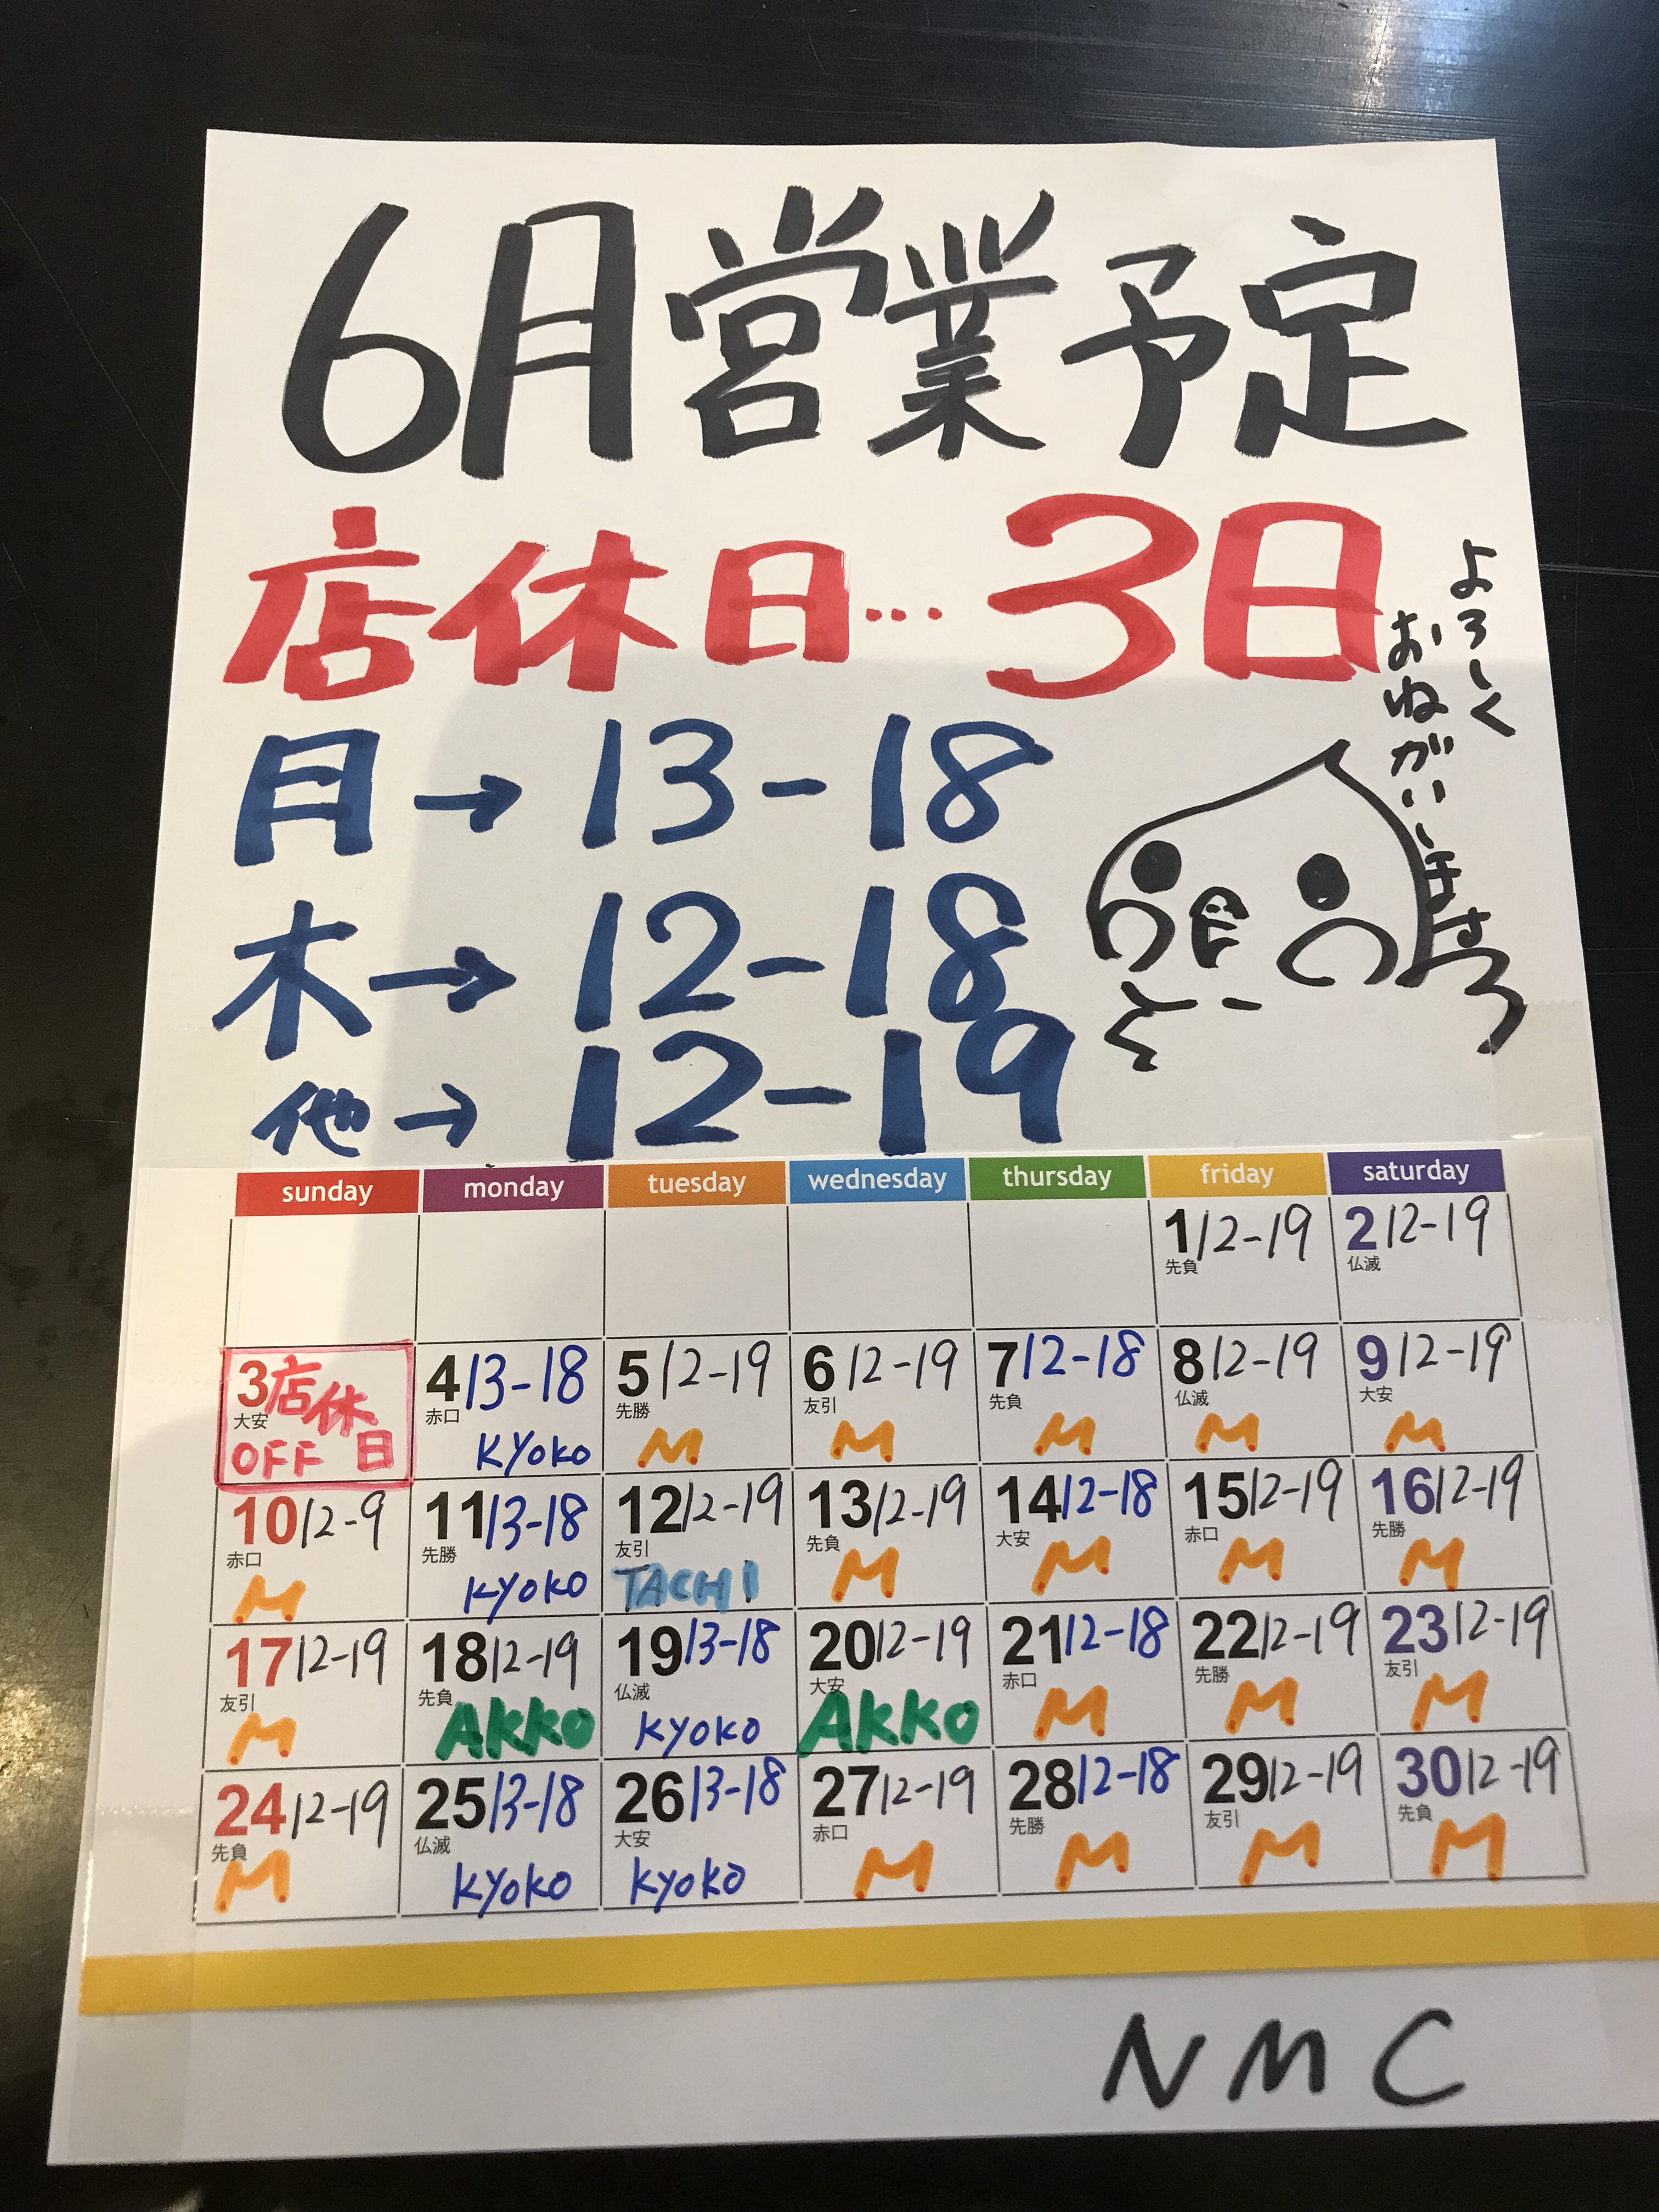 6月営業予定
店休日…3日
月→13-18
木→12-18
他→12-19
よろしく
おねがいします
sunday monday tuesday wednesday thursday friday saturday
1 12-19 2 12-19
先負 仏滅
3 店休日 4 13-18 5 12-19 6 12-19 7 12-18 8 12-19 9 12-19
大安 赤口 先勝 友引 先負 仏滅 大安
OFF KYOKO M M M M M
10 12-9 11 13-18 12 12-19 13 12-19 14 12-18 15 12-19 16 12-19
赤口 先勝 友引 先負 大安 赤口 先勝
M KYOKO TACHI M M M M
17 12-19 18 12-19 19 13-18 20 12-19 21 12-18 22 12-19 23 12-19
友引 先負 仏滅 大安 赤口 先勝 友引
M AKKO KYOKO AKKO M M M
24 12-19 25 13-18 26 13-18 27 12-19 28 12-18 29 12-19 30 12-19
先負 仏滅 大安 赤口 先勝 友引 先負
M KYOKO KYOKO M M M M
NMC